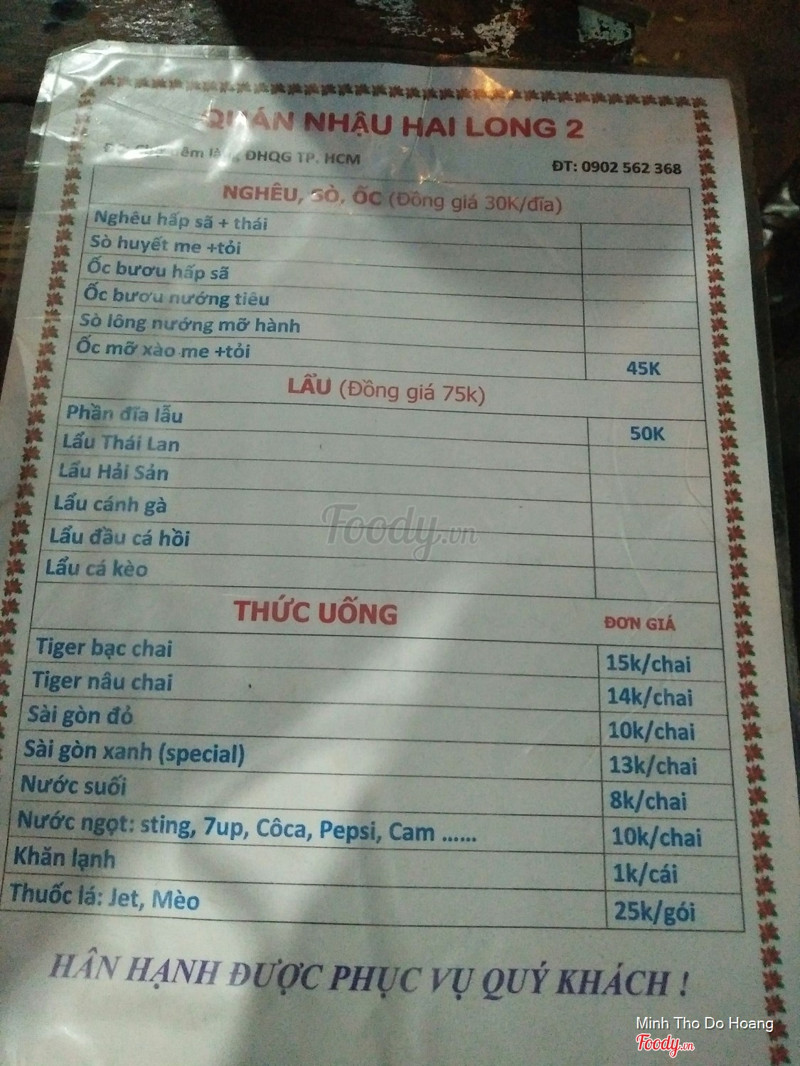 QUÁN NHẬU HAI LONG 2
ĐHQG TP. HCM
ĐT: 0902 562 368
NGHÊU, SÒ, ỐC (Đồng giá 30K/đĩa)
Nghêu hấp sã + thái
Sò huyết me +tỏi
Ốc bươu hấp sã
Ốc bươu nướng tiêu
Sò lông nướng mỡ hành
Ốc mỡ xào me +tỏi 45K
LẨU (Đồng giá 75k)
Phần đĩa lẫu 50K
Lẩu Thái Lan
Lẩu Hải Sản
Lẩu cánh gà
Lẩu đầu cá hồi
Lẩu cá kèo
THỨC UỐNG ĐƠN GIÁ
Tiger bạc chai 15k/chai
Tiger nâu chai 14k/chai
Sài gòn đỏ 10k/chai
Sài gòn xanh (special) 13k/chai
Nước suối 8k/chai
Nước ngọt: sting, 7up, Côca, Pepsi, Cam ...... 10k/chai
Khăn lạnh 1k/cái
Thuốc lá: Jet, Mèo 25k/gói
HÂN HẠNH ĐƯỢC PHỤC VỤ QUÝ KHÁCH !
Foody.vn
Minh Tho Do Hoang
Foody.vn